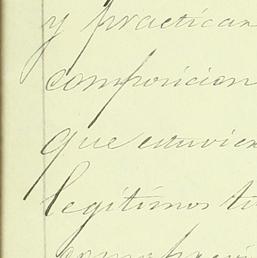 y practican
composicion
que estuvier
legitimos ti